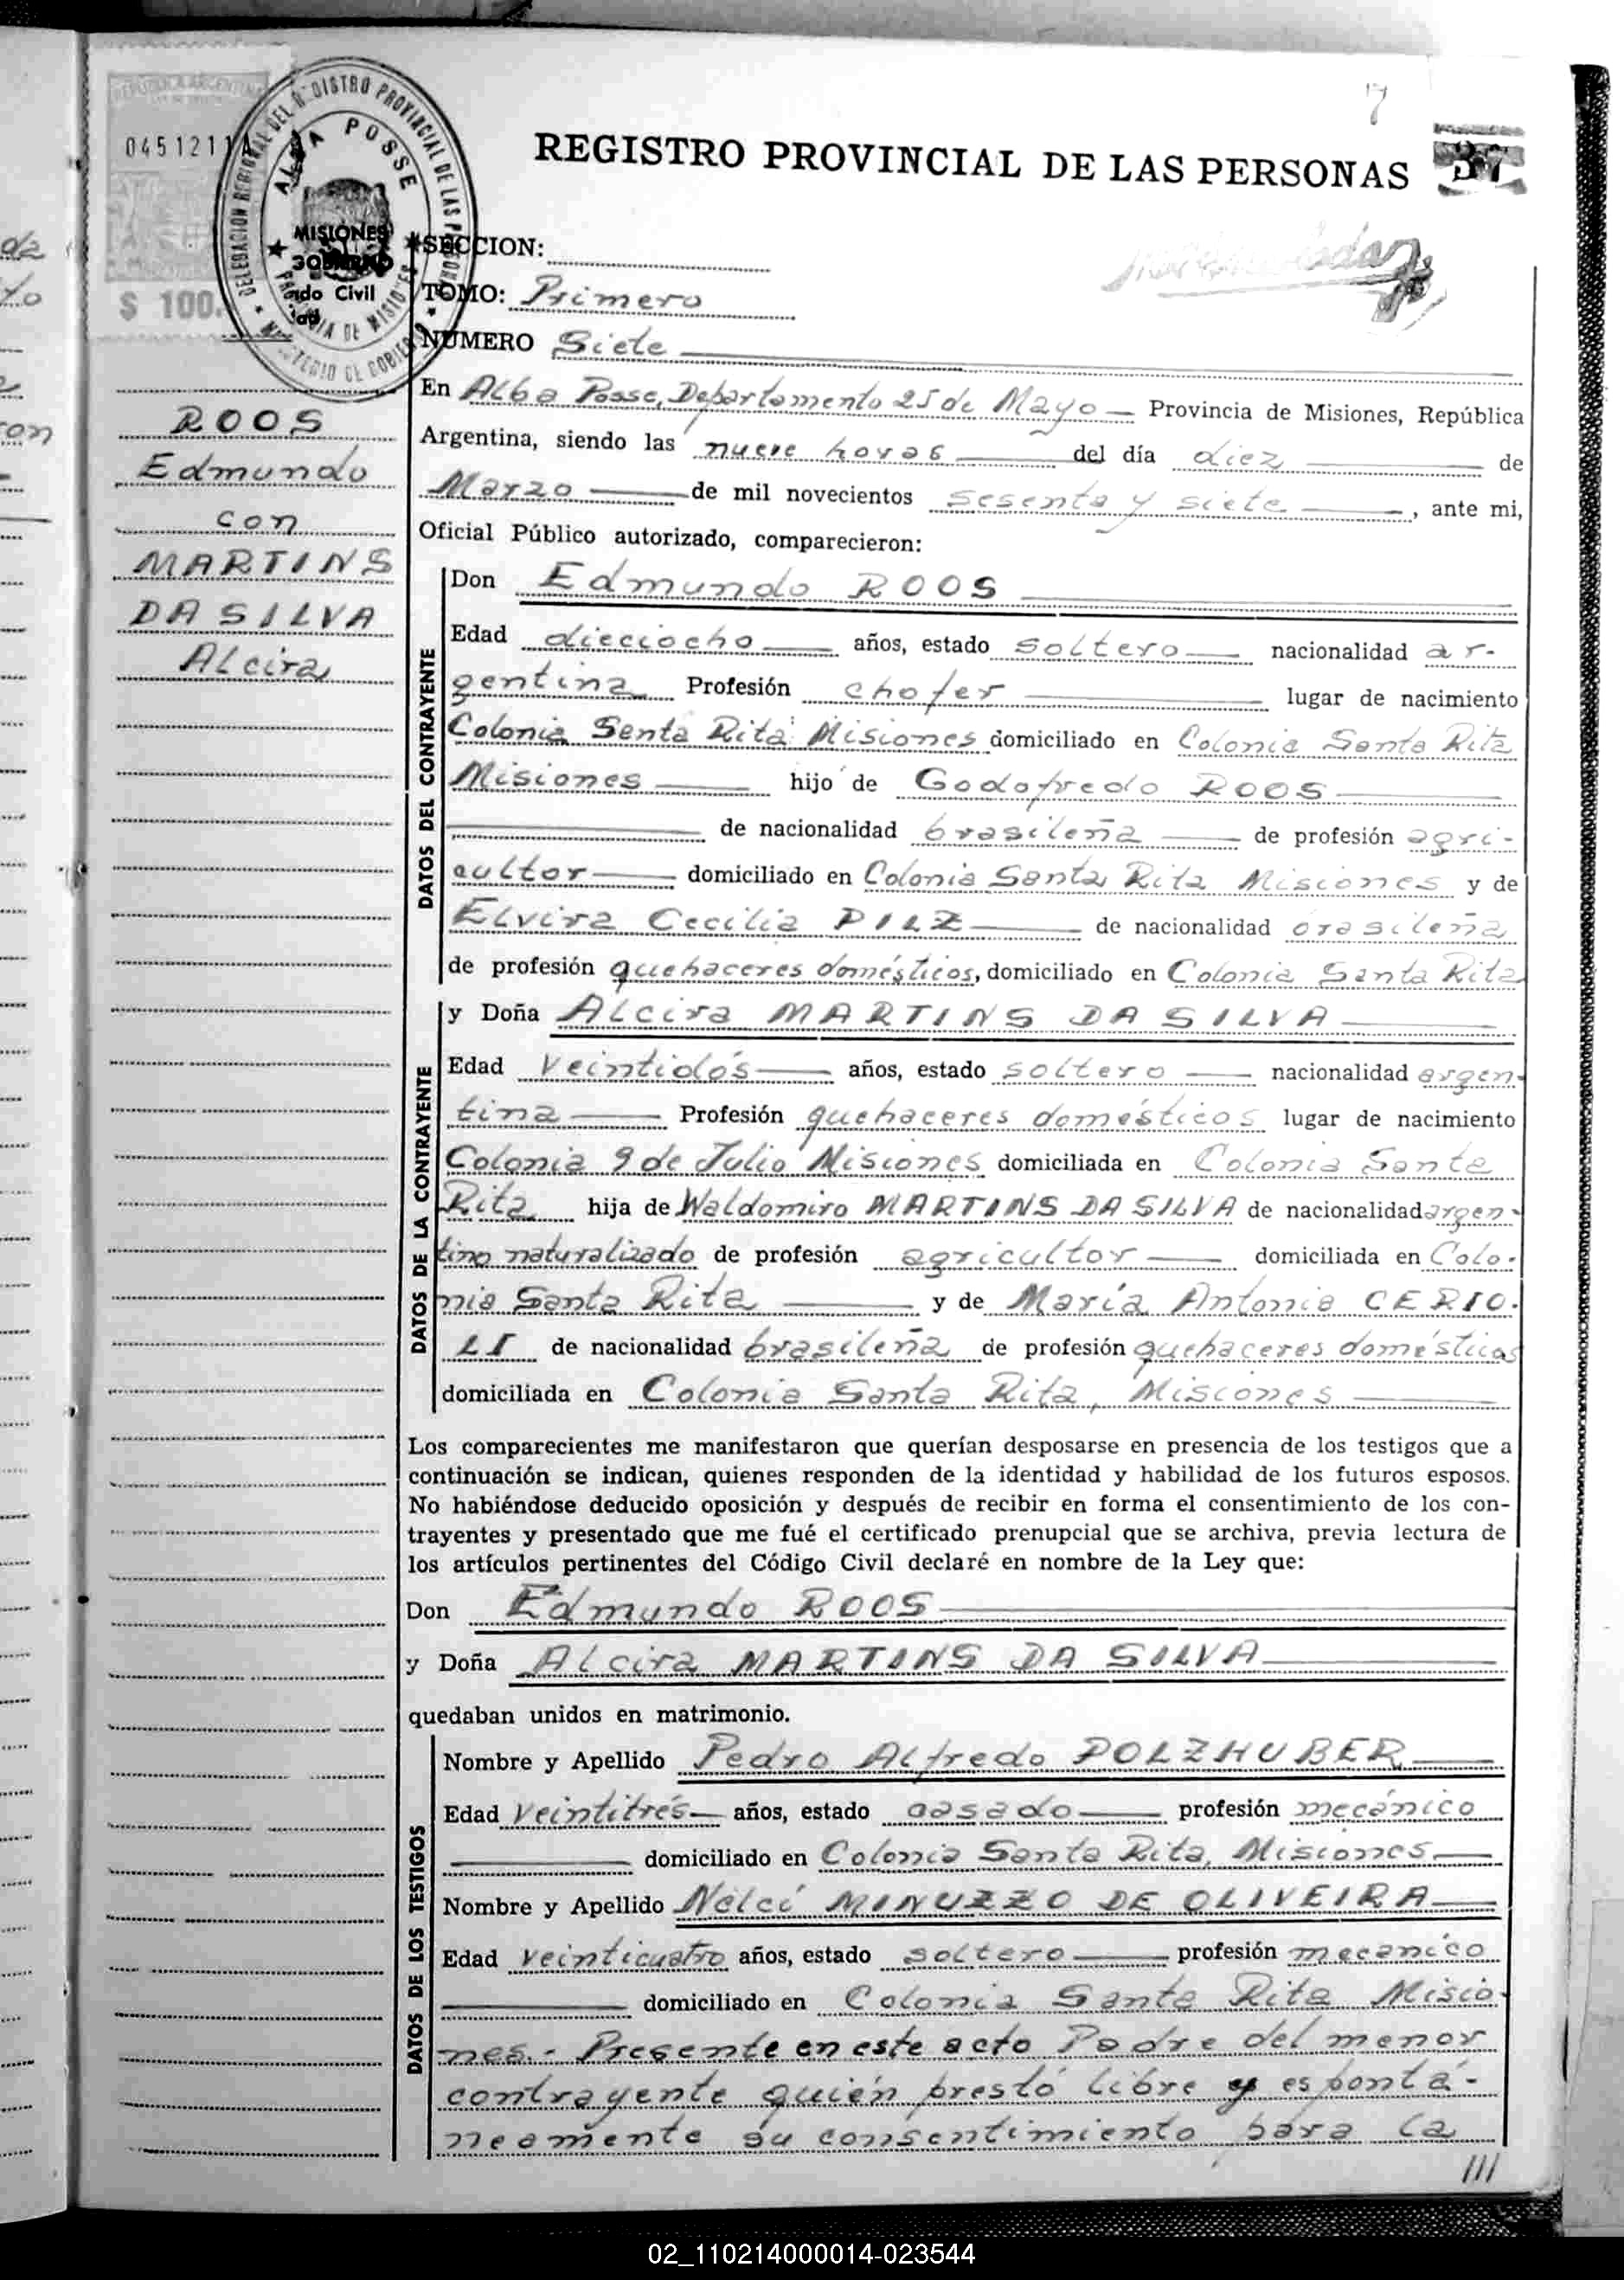 7
REPUBLICA ARGENTINA
04512111
$ 100.
DELEGACION REGIONAL DEL REGISTRO PROVINCIAL DE LAS PERSONAS
ALBA POSSE
PROVINCIA DE MISIONES
MINISTERIO DE GOBIERNO
MISIONES
GOBIERNO
Civil
REGISTRO PROVINCIAL DE LAS PERSONAS
SECCION:
TOMO: Primero
NUMERO Siete
ROOS
Edmundo
con
MARTINS
DA SILVA
Alcira
En Alba Posse, Departamento 25 de Mayo — Provincia de Misiones, República
Argentina, siendo las nueve horas — del día diez — de
Marzo — de mil novecientos sesenta y siete —, ante mi,
Oficial Público autorizado, comparecieron:
DATOS DEL CONTRAYENTE
Don Edmundo ROOS
Edad dieciocho — años, estado soltero — nacionalidad ar-
gentina Profesión chofer — lugar de nacimiento
Colonia Santa Rita Misiones domiciliado en Colonia Santa Rita
Misiones — hijo de Godofredo ROOS —
— de nacionalidad brasileña — de profesión agri-
cultor — domiciliado en Colonia Santa Rita Misiones y de
Elvira Cecilia PILZ — de nacionalidad brasileña
de profesión quehaceres domésticos, domiciliado en Colonia Santa Rita
DATOS DE LA CONTRAYENTE
y Doña Alcira MARTINS DA SILVA —
Edad Veintidós — años, estado soltero — nacionalidad argen-
tina — Profesión quehaceres domésticos lugar de nacimiento
Colonia 9 de Julio Misiones domiciliada en Colonia Santa
Rita hija de Waldomiro MARTINS DA SILVA de nacionalidad argen-
tino naturalizado de profesión agricultor — domiciliada en Colo-
nia Santa Rita — y de María Antonia CERIO-
LI de nacionalidad brasileña de profesión quehaceres domésticos
domiciliada en Colonia Santa Rita, Misiones —
Los comparecientes me manifestaron que querían desposarse en presencia de los testigos que a
continuación se indican, quienes responden de la identidad y habilidad de los futuros esposos.
No habiéndose deducido oposición y después de recibir en forma el consentimiento de los con-
trayentes y presentado que me fué el certificado prenupcial que se archiva, previa lectura de
los artículos pertinentes del Código Civil declaré en nombre de la Ley que:
Don Edmundo ROOS —
y Doña Alcira MARTINS DA SILVA —
quedaban unidos en matrimonio.
DATOS DE LOS TESTIGOS
Nombre y Apellido Pedro Alfredo POLZHUBER —
Edad Veintitrés — años, estado casado — profesión mecánico
— domiciliado en Colonia Santa Rita, Misiones —
Nombre y Apellido Nelci MINUZZO DE OLIVEIRA —
Edad veinticuatro años, estado soltero — profesión mecánico
— domiciliado en Colonia Santa Rita Misio-
nes.- Presente en este acto Padre del menor
contrayente quién prestó libre y espontá-
neamente su consentimiento para la
///
02_110214000014-023544